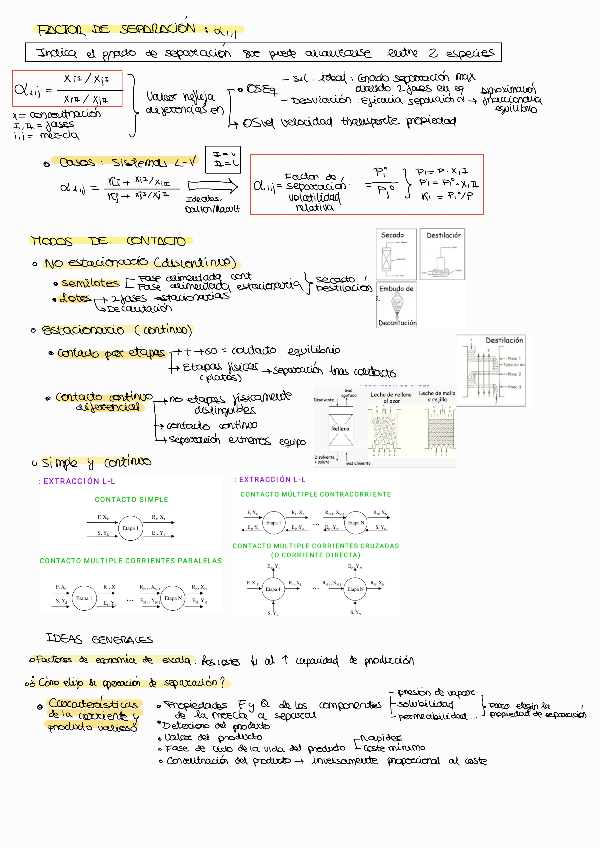 FACTOR DE SEPARACIÓN: αi,j
Indica el grado de separación que puede alcanzarse entre 2 especies
αi,j = XiI / XjI
XiII / XjII
X = concentración
I, II = fases
i, j = mezcla
Valor refleja diferencias en
OSEq
- Sit. ideal: Grado separación max
cuando 2 fases en eq
- Desviación, eficacia separación
→ aproximación
equilibrio
OSvel velocidad transporte propiedad
Casos: Sistemas L-V
I = V
II = L
αi,j = Ki → XiI/XiII
Kj → XjI/XjII
Ideales,
Dalton/Raoult
αi,j = Factor de
separación:
volatilidad
relativa
= Pi°
Pj°
Pi = P · XiI
Pi = Pi° · XiII
Ki = Pi°/P
MODOS DE CONTACTO
No estacionario (discontinuo)
semilotes
Fase alimentada cont
Fase alimentada estacionaria
secado
Destilación
Lotes → 2 fases estacionarias
→ Decantación
Secado
Destilación
Embudo de
Decantación
Estacionario (continuo)
Contacto por etapas → t → ∞ = contacto equilibrio
→ Etapas físicas → separación tras contacto
(platos)
Destilación
Plato 1
Plato 2
Plato 3
Contacto continuo → no etapas físicamente
diferencial
distinguibles
→ contacto continuo
→ separación extremos equipo
Gas
Disolvente
Relleno
Disolvente
+ soluto
Gas alimento
Lecho de relleno
al azar
Lecho de malla
o rejilla
Simple y continuo
: EXTRACCIÓN L-L
CONTACTO SIMPLE
Etapa 1
CONTACTO MULTIPLE CORRIENTES PARALELAS
Etapa 1
Etapa N
: EXTRACCIÓN L-L
CONTACTO MÚLTIPLE CONTRACORRIENTE
Etapa 1
Etapa N
CONTACTO MULTIPLE CORRIENTES CRUZADAS
(O CORRIENTE DIRECTA)
Etapa 1
Etapa N
IDEAS GENERALES
Factores de economía de escala: los costes ↓ al ↑ capacidad de producción
¿Cómo elijo la operación de separación?
Características
de la corriente y
producto valioso
Propiedades F y Q de los componentes
de la mezcla a separar
- presión de vapor
- solubilidad
- permeabilidad...
Para elegir la
propiedad de separación
Deterioro del producto
Valor del producto
Fase de ciclo de la vida del producto
Rapidez
Coste mínimo
Concentración del producto → inversamente proporcional al coste